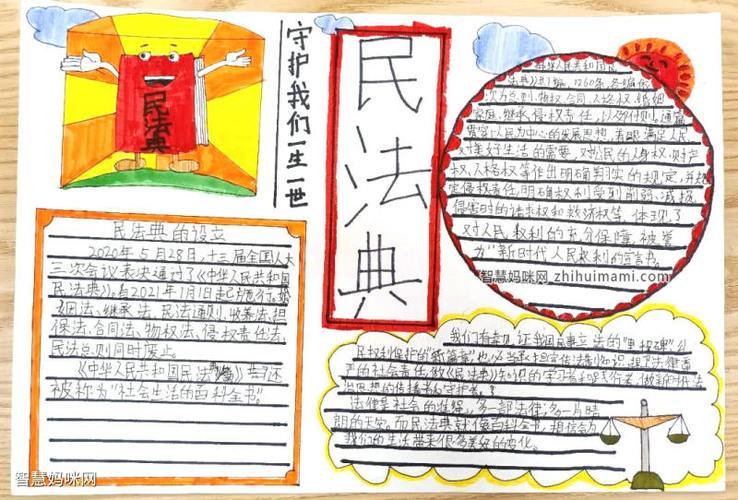 守护我们一生一世
民法典
民法典
民法典的设立
2020年5月28日,十三届全国人大
三次会议表决通过了《中华人民共和国
民法典》,自2021年1月1日起施行。婚
姻法、继承法、民法通则、收养法、担
保法、合同法、物权法、侵权责任法、
民法总则同时废止。
《中华人民共和国民法典》
被称为“社会生活的百科全书”。
中华人民共和国
民法典》共7编、1260条,各编依
次为总则、物权、合同、人格权、婚姻
家庭、继承、侵权责任,以及附则。通篇
贯穿以人民为中心的发展思想,着眼满足人民
对美好生活的需要,对公民的人身权、财产
权、人格权等作出明确翔实的规定,并规
定侵权责任,明确权利受到削弱、减损、
侵害时的请求权和救济权等,体现了
对人民权利的充分保障,被誉
为“新时代人民权利的宣言书。
智慧妈咪网 zhihuimami.com
我们有幸见证我国民事立法的“里程碑”公
民权利保护的
严的社会责任,做《民法典》知识的学习者和践行者,做新时代法
治思想的传播者、守护者。
法律是社会的准绳,多一部法律,多一片晴
朗的天空。而民法典就像百科全书,相信会为
我们的生活带来很多美好的变化。
智慧妈咪网